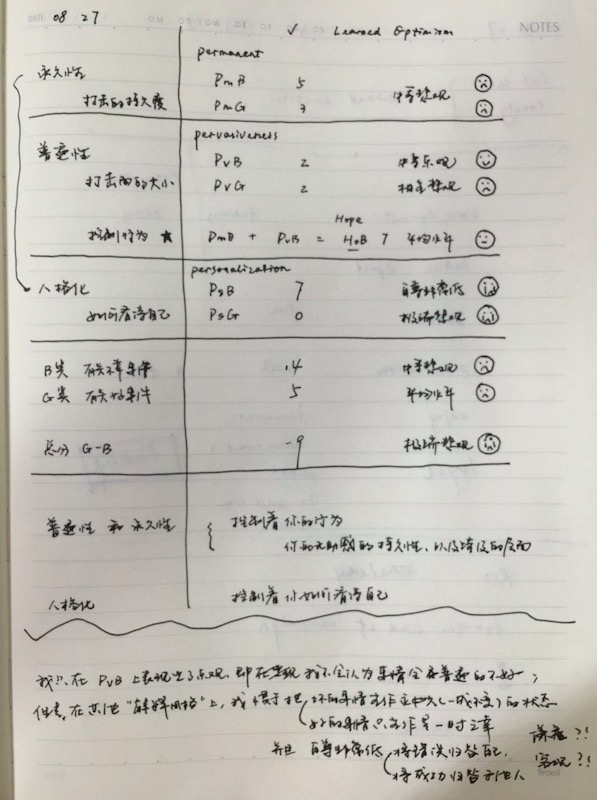 08 27
NOTES
✓ Learned Optimism
permanent
永久性 PmB 5 中等悲观
打击的持久度 PmG 3
pervasiveness
普遍性 PvB 2 中等乐观
打击面的大小 PvG 2 相当悲观
Hope
控制行为 ★ PmB + PvB = HoB 7 平均水平
personalization
人格化 PsB 7 自尊非常低
如何看待自己 PsG 0 极端悲观
B类 有关坏事件 14 中等悲观
G类 有关好事件 5 平均水平
总分 G-B -9 极端悲观
普遍性 和 永久性 { 控制着你的行为
你的无助感的持久性、以及跨及的层面
人格化 控制着你如何看待自己
我只在 PvB 上表现出了乐观，即在悲观 我不会认为事情会有普遍的不好；
但是，在其他"解释风格"上，我惯于把 坏的事情当作永久(一成不变)的状态
好的事情只当作是一时之幸
并且 自尊非常低 将错误归咎自己， 谦虚?!
将成功归咎于他人 客观?!